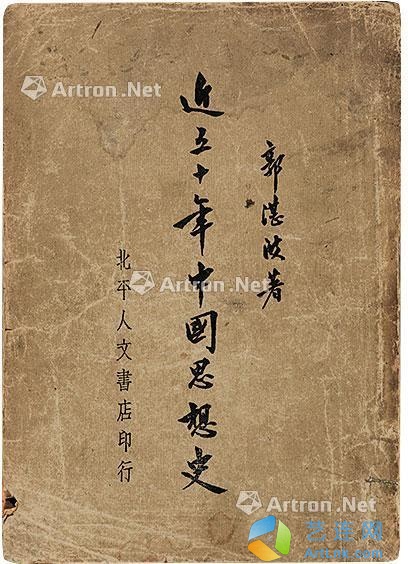 Artron.Net
郭湛波著
近五十年中國思想史
Artron.Net
北平人文書店印行
Artron.Net
艺连网